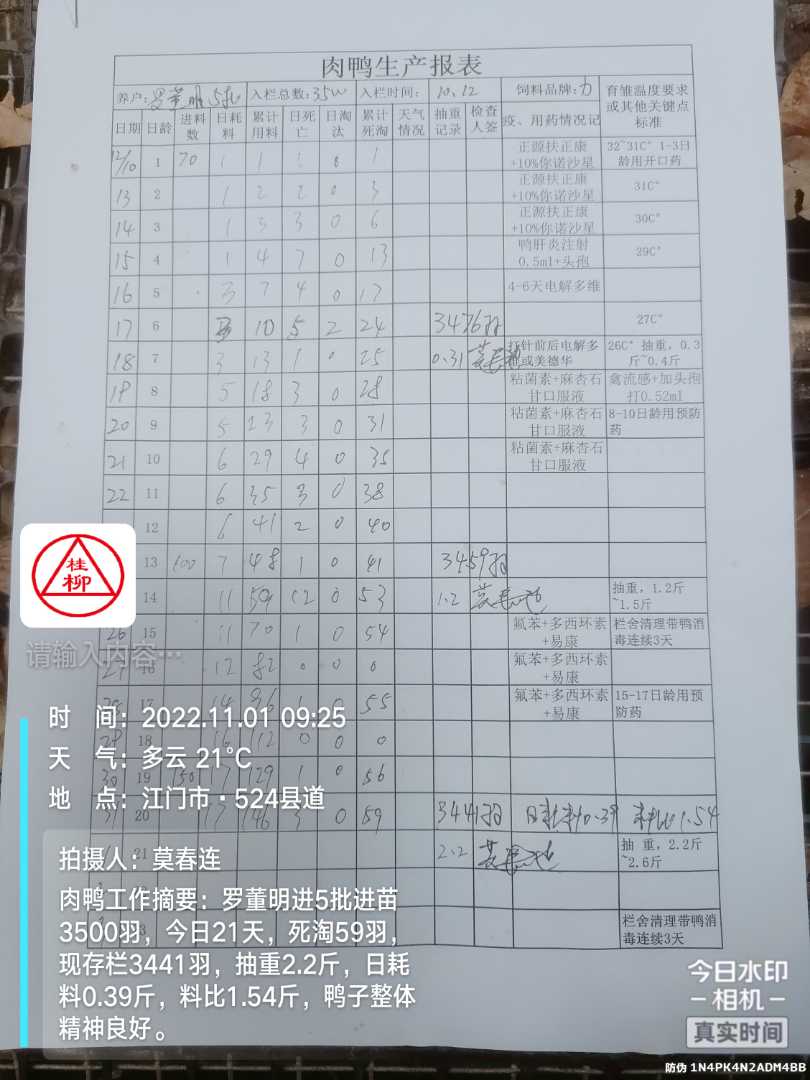 肉鸭生产报表
养户: 罗董明 5批 入栏总数: 3500 入栏时间: 10.12 饲料品牌: 力 育雏温度要求或其他关键点标准
日期 日龄 进料数 日耗料 累计用料 日死亡 日淘汰 累计死淘 天气情况 抽重记录 检查人签 疫、用药情况记
12/10 1 70 1 1 1 0 1 正源扶正康+10%你诺沙星 32~31C° 1-3日龄用开口药
13 2 1 2 2 0 3 正源扶正康+10%你诺沙星 31C°
14 3 1 3 3 0 6 正源扶正康+10%你诺沙星 30C°
15 4 1 4 7 0 13 鸭肝炎注射0.5ml+头孢 29C°
16 5 3 7 4 0 17 4-6天电解多维
17 6 3 10 5 2 24 3476羽 27C°
18 7 3 13 1 0 25 0.31 打针前后电解多维或美德华 26C° 抽重,0.3斤~0.4斤
19 8 5 18 3 0 28 粘菌素+麻杏石甘口服液 禽流感+加头孢打0.52ml
20 9 5 23 3 0 31 粘菌素+麻杏石甘口服液 8-10日龄用预防药
21 10 6 29 4 0 35 粘菌素+麻杏石甘口服液
22 11 6 35 3 0 38
12 6 41 2 0 40
13 100 7 48 1 0 41 3459羽
14 11 59 12 0 53 1.2 抽重,1.2斤~1.5斤
26 15 11 70 1 0 54 氟苯+多西环素+易康 栏舍清理带鸭消毒连续3天
27 16 12 82 0 0 0 氟苯+多西环素+易康
17 14 96 1 0 55 氟苯+多西环素+易康 15-17日龄用预防药
18 16 112 0 0 0
30 19 150 17 129 1 0 56
31 20 17 146 3 0 59 3441羽 日耗料0.39 料比1.54
21 2.2 抽重,2.2斤~2.6斤
栏舍清理带鸭消毒连续3天
桂柳
请输入内容…
时 间: 2022.11.01 09:25
天 气: 多云 21℃
地 点: 江门市·524县道
拍摄人: 莫春连
肉鸭工作摘要: 罗董明进5批进苗
3500羽,今日21天,死淘59羽,
现存栏3441羽,抽重2.2斤,日耗
料0.39斤,料比1.54斤,鸭子整体
精神良好。
今日水印
－相机－
真实时间
防伪 1N4PK4N2ADM4BB